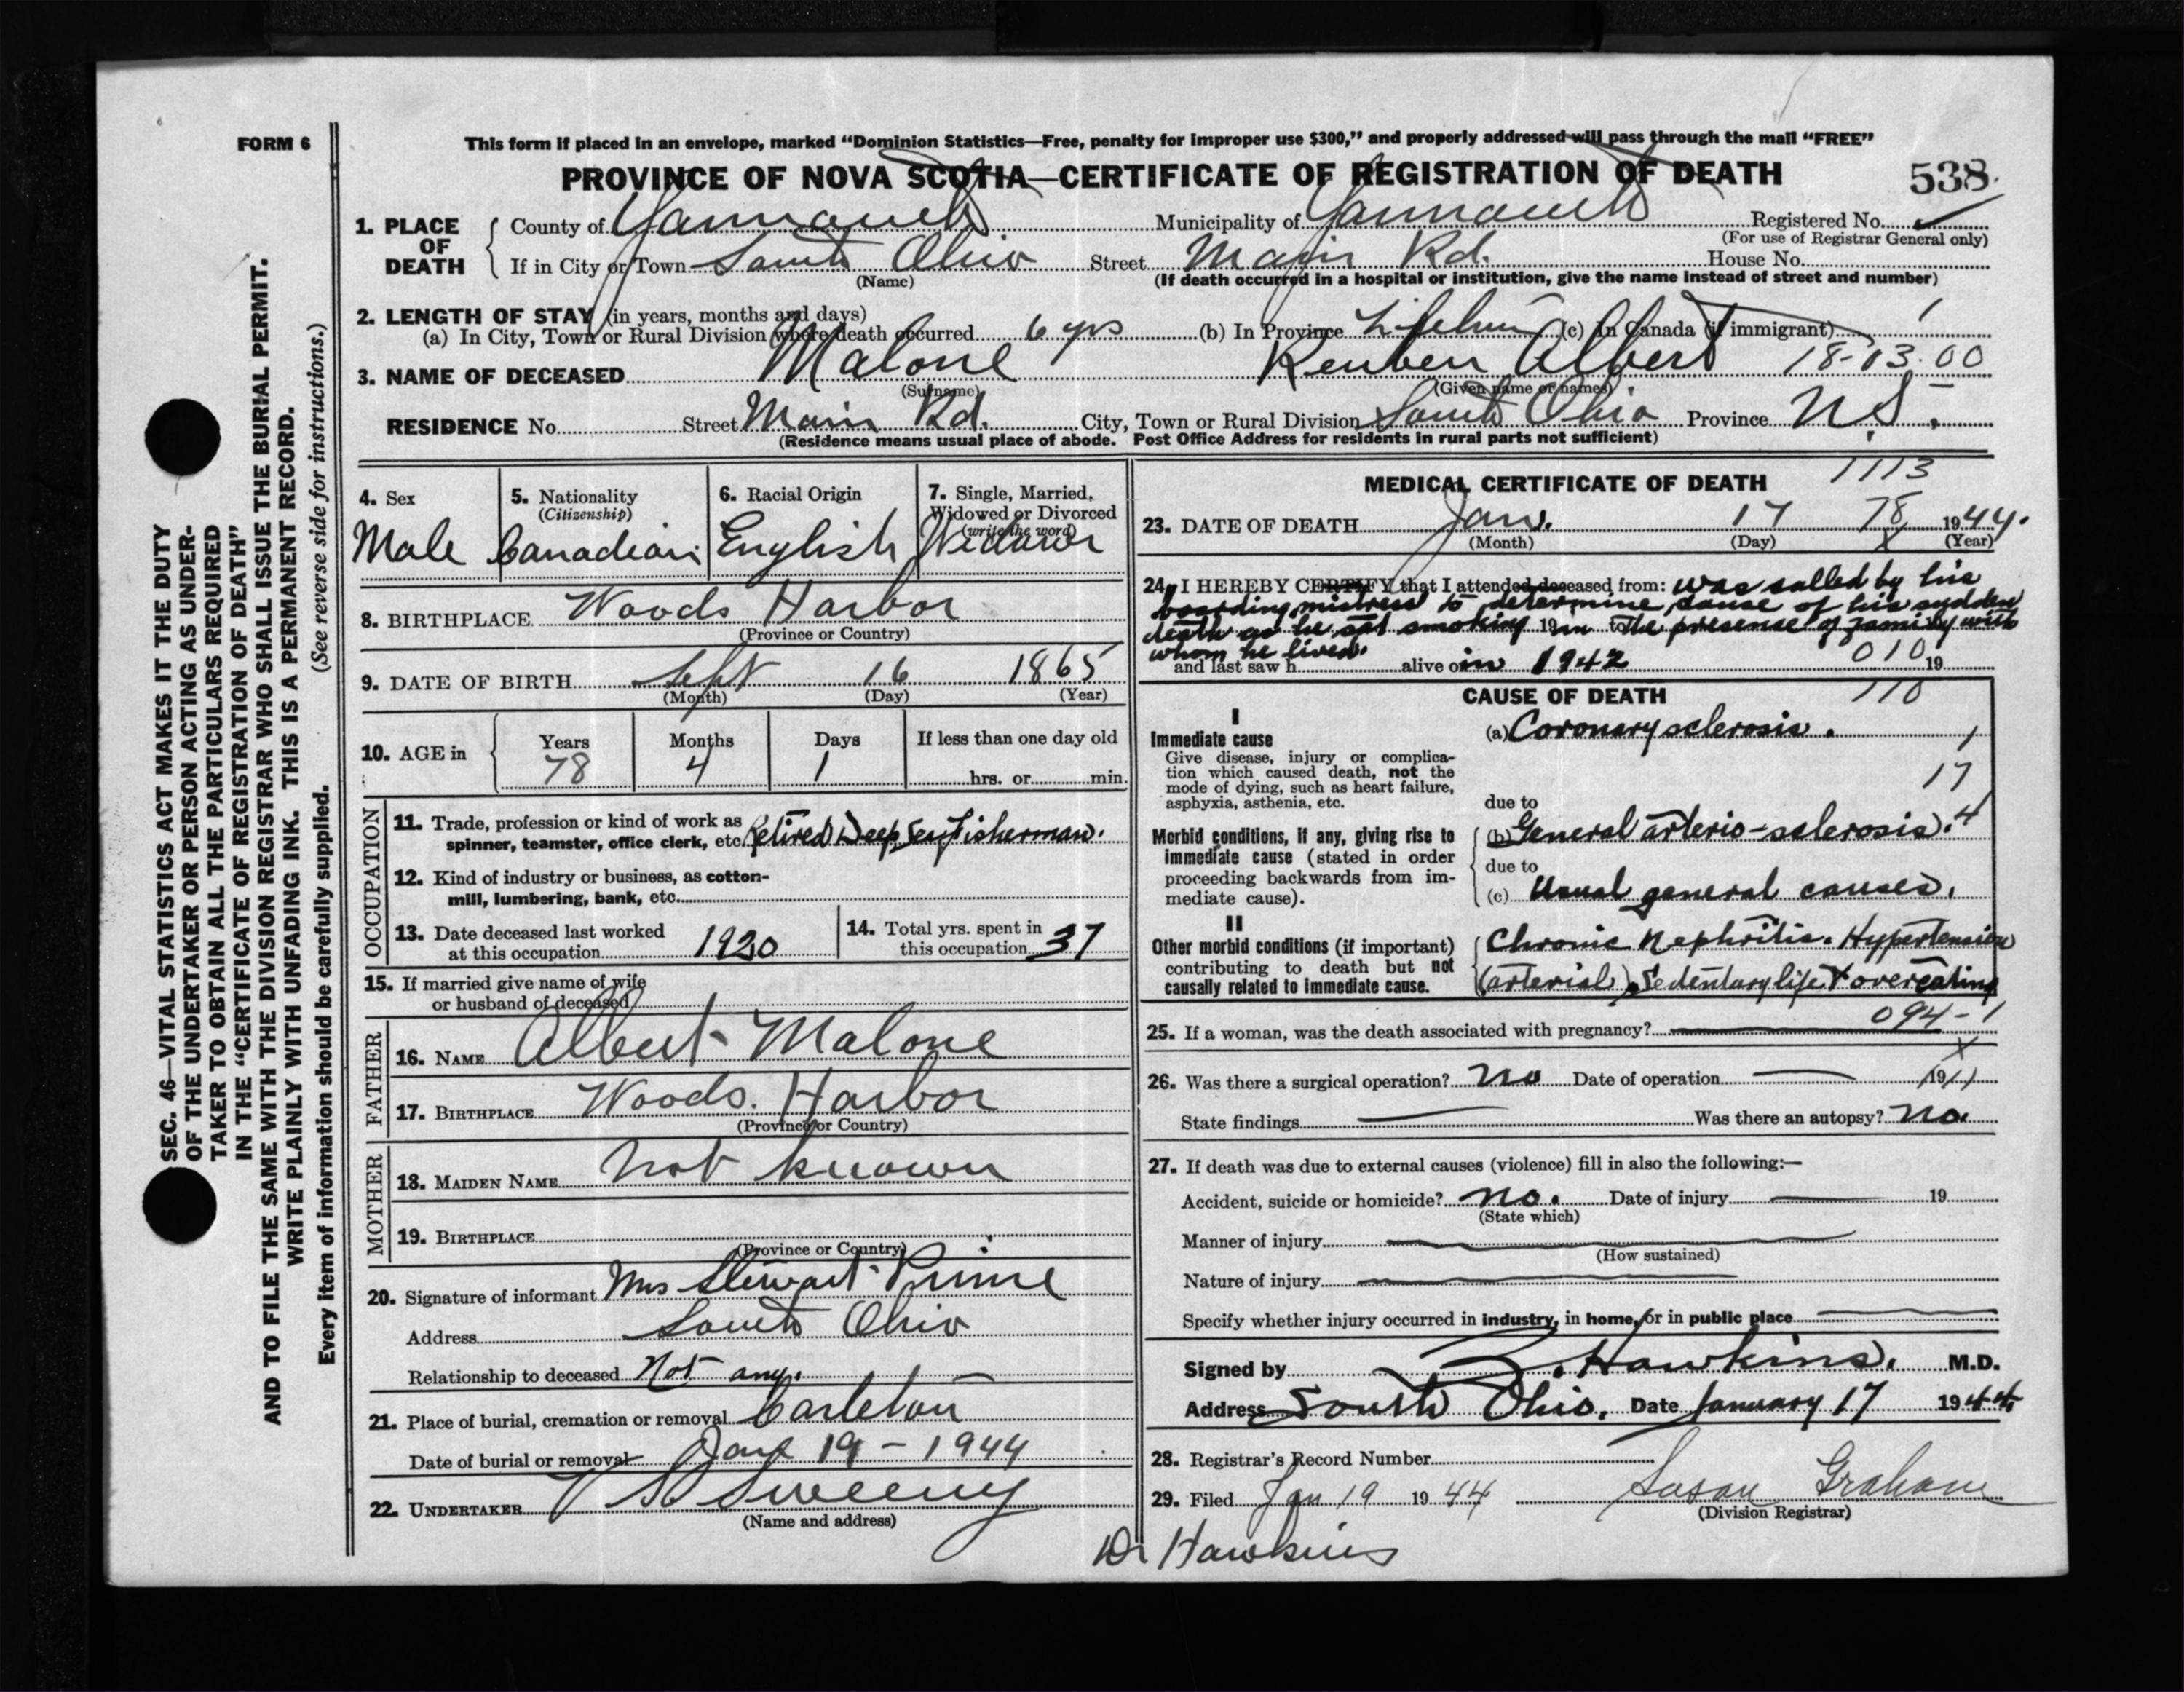 FORM 6
This form if placed in an envelope, marked "Dominion Statistics—Free, penalty for improper use $300," and properly addressed will pass through the mail "FREE"
PROVINCE OF NOVA SCOTIA—CERTIFICATE OF REGISTRATION OF DEATH
538
SEC. 46—VITAL STATISTICS ACT MAKES IT THE DUTY
OF THE UNDERTAKER OR PERSON ACTING AS UNDER-
TAKER TO OBTAIN ALL THE PARTICULARS REQUIRED
IN THE "CERTIFICATE OF REGISTRATION OF DEATH"
AND TO FILE THE SAME WITH THE DIVISION REGISTRAR WHO SHALL ISSUE THE BURIAL PERMIT.
WRITE PLAINLY WITH UNFADING INK. THIS IS A PERMANENT RECORD.
Every item of information should be carefully supplied. (See reverse side for instructions.)
1. PLACE OF DEATH
County of Yarmouth Municipality of Yarmouth Registered No.
(For use of Registrar General only)
If in City or Town South Ohio Street Main Rd. House No.
(Name) (If death occurred in a hospital or institution, give the name instead of street and number)
2. LENGTH OF STAY (in years, months and days)
(a) In City, Town or Rural Division where death occurred 6 yrs (b) In Province Lifetime (c) In Canada (if immigrant)
3. NAME OF DECEASED Malone Reuben Albert 18-03-00
(Surname) (Given name or names)
RESIDENCE No. Street Main Rd. City, Town or Rural Division South Ohio Province N.S.
(Residence means usual place of abode. Post Office Address for residents in rural parts not sufficient)
4. Sex
Male
5. Nationality
(Citizenship)
Canadian
6. Racial Origin
English
7. Single, Married,
Widowed or Divorced
(write the word)
Widower
8. BIRTHPLACE Woods Harbor
(Province or Country)
9. DATE OF BIRTH Sept 16 1865
(Month) (Day) (Year)
10. AGE in
Years Months Days If less than one day old
78 4 1 hrs. or min.
OCCUPATION
11. Trade, profession or kind of work as
spinner, teamster, office clerk, etc. Retired Deep Sea Fisherman.
12. Kind of industry or business, as cotton-
mill, lumbering, bank, etc.
13. Date deceased last worked
at this occupation 1930
14. Total yrs. spent in
this occupation 37
15. If married give name of wife
or husband of deceased
FATHER
16. NAME Albert Malone
17. BIRTHPLACE Woods Harbor
(Province or Country)
MOTHER
18. MAIDEN NAME not known
19. BIRTHPLACE
(Province or Country)
20. Signature of informant Mrs Stewart Prime
Address South Ohio
Relationship to deceased Not any.
21. Place of burial, cremation or removal Carleton
Date of burial or removal Jany 19 - 1944
22. UNDERTAKER V S Sweeny
(Name and address)
MEDICAL CERTIFICATE OF DEATH
1113
23. DATE OF DEATH Jan. 17 78 1944.
(Month) (Day) (Year)
24. I HEREBY CERTIFY that I attended deceased from: was called by his
boarding mistress to determine cause of his sudden
death as he sat smoking 19 in to the presense of family with
whom he lived.
and last saw h alive on in 1942 010 19
CAUSE OF DEATH 110
I
Immediate cause
Give disease, injury or complica-
tion which caused death, not the
mode of dying, such as heart failure,
asphyxia, asthenia, etc.
(a) Coronary sclerosis. 1
17
due to
Morbid conditions, if any, giving rise to
immediate cause (stated in order
proceeding backwards from im-
mediate cause).
(b) General arterio-sclerosis. 4
due to
(c) Usual general causes.
II
Other morbid conditions (if important)
contributing to death but not
causally related to immediate cause.
Chronic Nephritis. Hypertension
(arterial). Sedentary life & overeating
094-1
25. If a woman, was the death associated with pregnancy?
26. Was there a surgical operation? no Date of operation 19
State findings Was there an autopsy? no.
27. If death was due to external causes (violence) fill in also the following:—
Accident, suicide or homicide? no. Date of injury 19
(State which)
Manner of injury
(How sustained)
Nature of injury
Specify whether injury occurred in industry, in home, or in public place
Signed by Z. Hawkins. M.D.
Address South Ohio. Date January 17 1944
28. Registrar's Record Number
29. Filed Jan 19 1944 Susan Graham
(Division Registrar)
Dr Hawkins